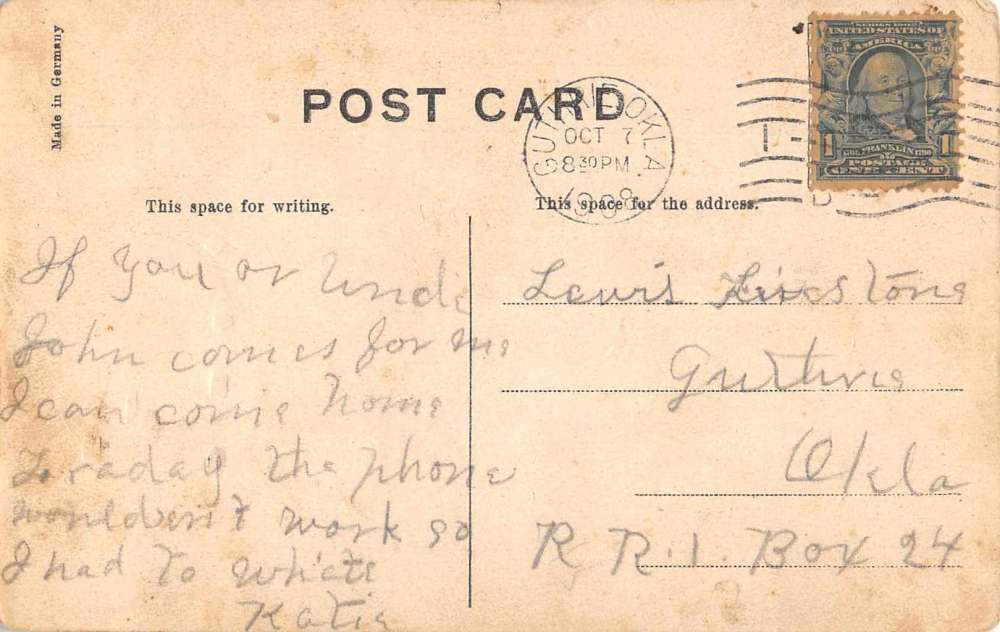 Made in Germany
POST CARD
GUTHRIE, OKLA.
OCT 7
8 30 PM
1908
SERIES 1902
UNITED STATES OF
AMERICA
1 FRANKLIN 1
POSTAGE
ONE CENT
This space for writing.
This space for the address.
If you or Uncle
John comes for me
I can come home
the phone
wouldent work so
I had to
Katie
Lewis
Guthrie
Okla
R R. 1. Box 24